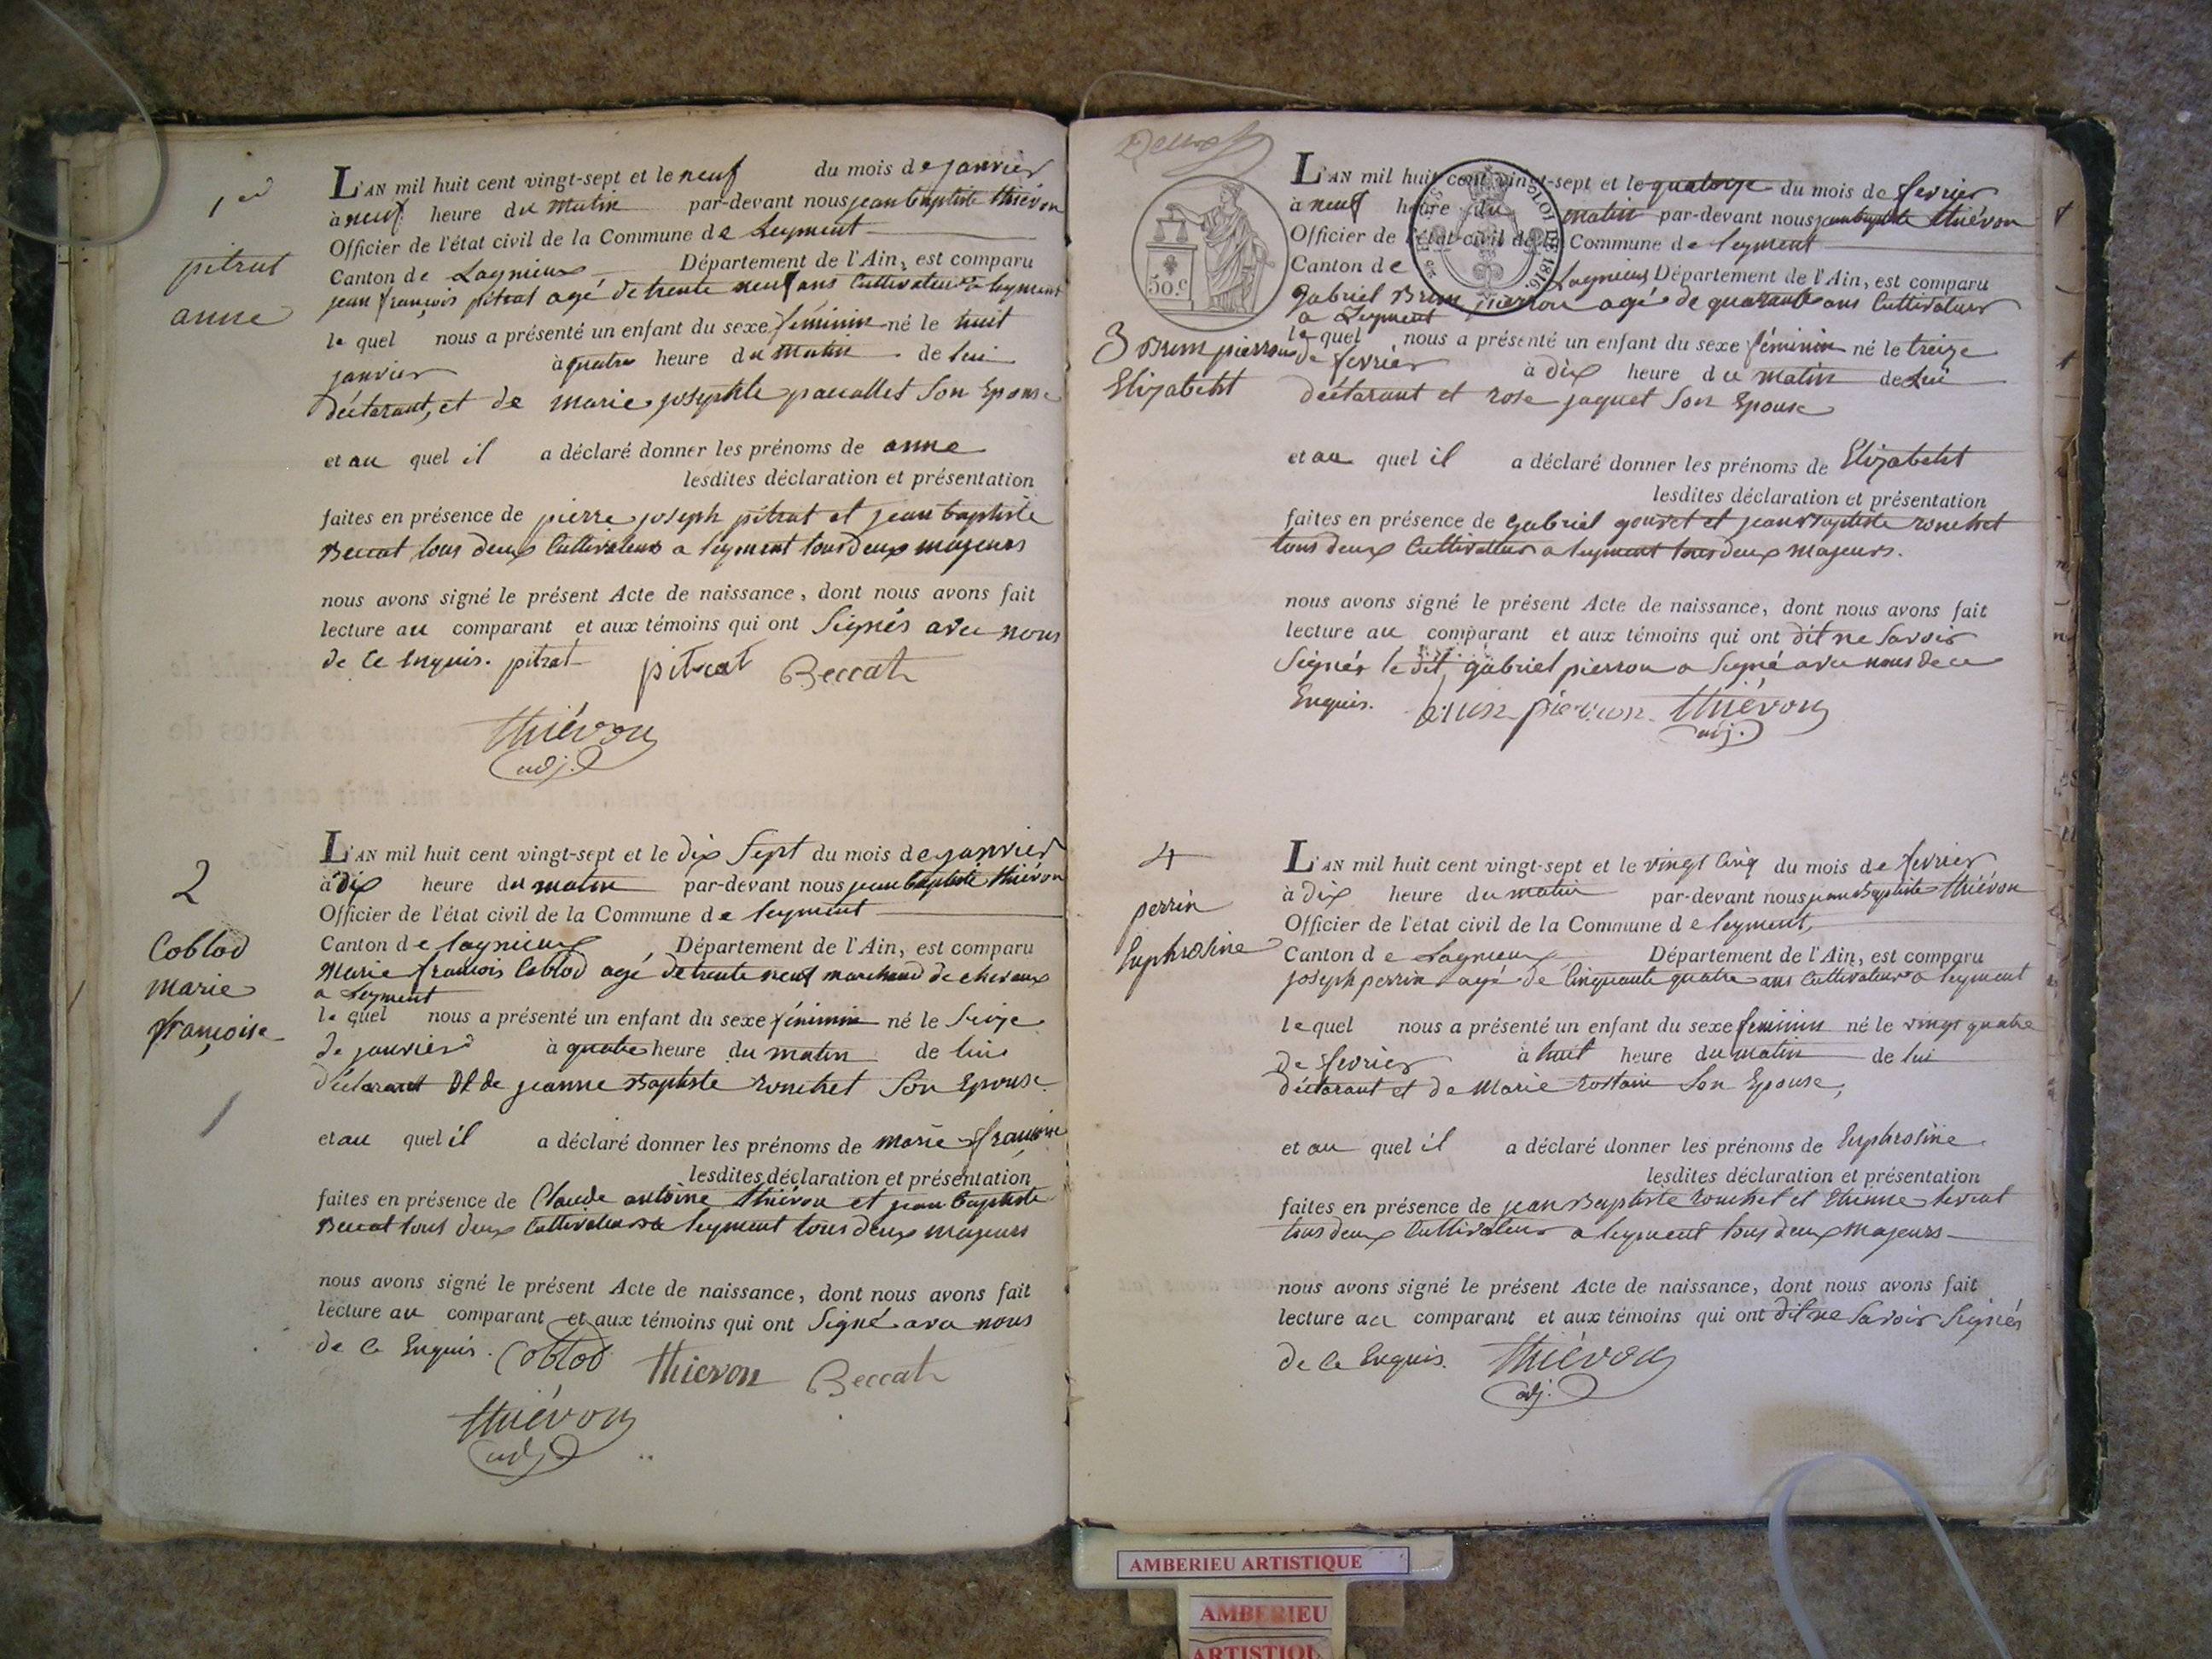 1er
pitrat
anne
L'AN mil huit cent vingt-sept et le neuf du mois de janvier
à neuf heure du matin par-devant nous jean baptiste thiévon
Officier de l'état civil de la Commune de Leyment
Canton de Lagnieux Département de l'Ain, est comparu
jean françois pitrat agé de trente neuf ans Cultivateur a leyment
le quel nous a présenté un enfant du sexe féminin né le huit
janvier à quatre heure du matin de lui
déclarant, et de marie josephte paccallet Son Epouse
et au quel il a déclaré donner les prénoms de anne
lesdites déclaration et présentation
faites en présence de pierre joseph pitrat et jean baptiste
Beccat tous deux Cultivateurs a leyment tous deux majeurs
nous avons signé le présent Acte de naissance, dont nous avons fait
lecture au comparant et aux témoins qui ont Signés avec nous
de ce Enquis. pitrat pitrat Beccat
thiévon
adj.
2
Coblod
marie
françoise
L'AN mil huit cent vingt-sept et le dix Sept du mois de janvier
à dix heure du matin par-devant nous jean baptiste thiévon
Officier de l'état civil de la Commune de leyment
Canton de lagnieux, Département de l'Ain, est comparu
Marie françois Coblod agé de trente neuf marchand de chevaux
a Leyment
le quel nous a présenté un enfant du sexe féminin né le Seize
de janvier à quatre heure du matin de lui
déclarant et de jeanne Baptiste ronchet Son Epouse
et au quel il a déclaré donner les prénoms de marie françoise
lesdites déclaration et présentation
faites en présence de Claude antoine thiévon et jean baptiste
Beccat tous deux Cultivateurs a leyment tous deux majeurs
nous avons signé le présent Acte de naissance, dont nous avons fait
lecture au comparant et aux témoins qui ont Signé avec nous
de ce Enquis. Coblod thievon Beccat
thiévon
adj.
Deux
50.c
1816
3 Brun pierron
Elizabeht
L'AN mil huit cent vingt-sept et le quatorze du mois de fevrier
à neuf heure du matin par-devant nous jean baptiste thiévon
Officier de l'état civil de la Commune de leyment
Canton de Lagnieux Département de l'Ain, est comparu
Gabriel Brun pierron agé de quarante ans Cultivateur
a Leyment
le quel nous a présenté un enfant du sexe féminin né le treize
de fevrier à dix heure du matin de Lui
déclarant et rose jaquet Son Epouse
et au quel il a déclaré donner les prénoms de Elizabeht
lesdites déclaration et présentation
faites en présence de gabriel gouvet et jean Baptiste ronchet
tous deux Cultivateur a leyment tous deux majeurs.
nous avons signé le présent Acte de naissance, dont nous avons fait
lecture au comparant et aux témoins qui ont dit ne Savoir
Signés le dit gabriel pierron a Signé avec nous de ce
Enquis. brun pierron thiévon
adj.
4
perrin
Euphrosine
L'AN mil huit cent vingt-sept et le vingt Cinq du mois de fevrier
à dix heure du matin par-devant nous jean Baptiste thiévon
Officier de l'état civil de la Commune de leyment,
Canton de Lagnieux Département de l'Ain, est comparu
joseph perrin agé de Cinquante quatre ans Cultivateur a leyment
le quel nous a présenté un enfant du sexe feminin né le vingt quatre
de fevrier à huit heure du matin de lui
déclarant et de Marie rostain Son Epouse,
et au quel il a déclaré donner les prénoms de Euphrosine
lesdites déclaration et présentation
faites en présence de jean Baptiste ronchet et Etienne
tous deux Cultivateur a leyment tous deux majeurs
nous avons signé le présent Acte de naissance, dont nous avons fait
lecture au comparant et aux témoins qui ont dit ne Savoir Signés
de ce Enquis. thiévon
adj.
AMBERIEU ARTISTIQUE
AMBERIEU
ARTISTIQU